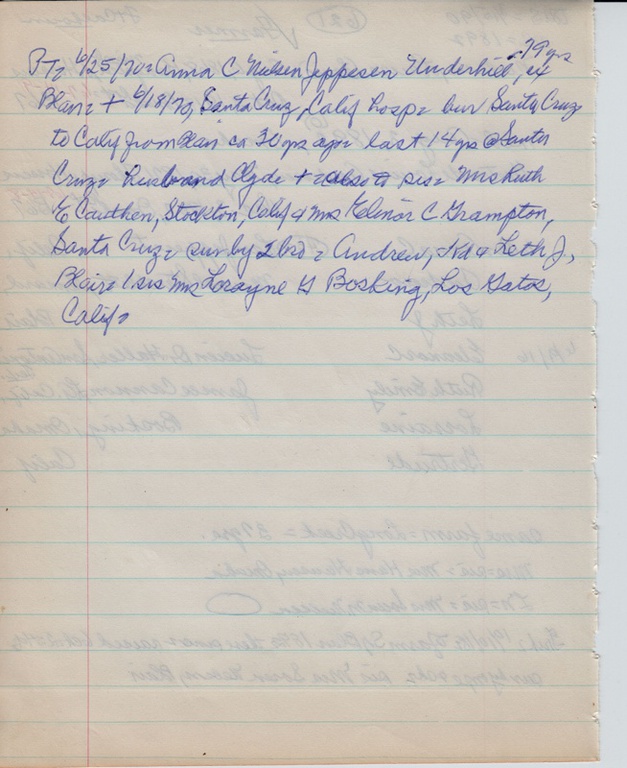 79 yrs
PT= 6/25/70= Anna C Nielsen Jeppesen Underhill, ex
Blair= + 6/18/70, Santa Cruz, Calif hosp= bur Santa Cruz=
to Calif from Blair ca 30 yrs ago= last 14 yrs @ Santa
Cruz= husband Clyde += also to sis= Mrs Ruth
E Cauthen, Stockton, Calif & Mrs Elinor C Grampton,
Santa Cruz= sur by 2 bro= Andrew, & Leth J,
Blair= 1 sis Mrs Lorayne G Bosking, Los Gatos,
Calif=